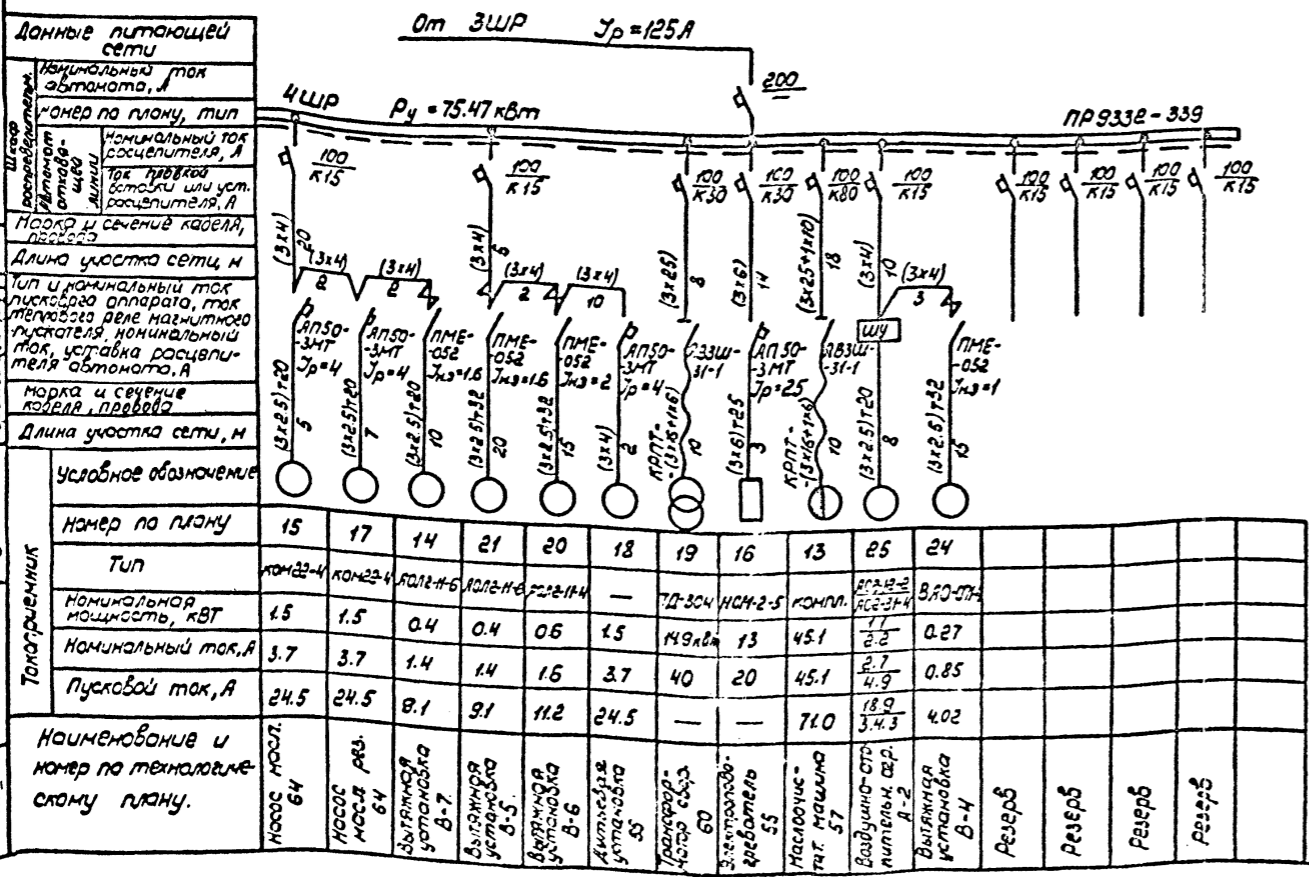 От 3ШР Iр=125А
200
4ШР Ру = 75.47 кВт ПР9332-339
100/К15
100/К15
100/К30
100/К30
100/К80
100/К15
100/К15
100/К15
100/К15
100/К15
Данные питающей
сети
Шкаф
распределительн.
Номинальный ток
автомата, А
Номер по плану, тип
Номинальный ток
расцепителя, А
Ток плавкой
вставки или уст.
расцепителя, А
Марка и сечение кабеля,
провода
Длина участка сети, м
Тип и номинальный ток
пускового аппарата, ток
теплового реле магнитного
пускателя, номинальный
ток, уставка расцепи-
теля автомата, А
Марка и сечение
кабеля, провода
Длина участка сети, м
(3х4) 20
(3х4) 2
(3х4) 2
(3х4) 5
(3х4) 2
(3х4) 10
(3х25) 8
(3х6) 14
(3х25+1х10) 18
(3х4) 10
(3х4) 3
АП50-
-3МТ
Iр=4
АП50-
-3МТ
Iр=4
ПМЕ-
-052
Iнэ=1.6
ПМЕ-
-052
Iнэ=1.6
ПМЕ-
-052
Iнэ=2
АП50-
-3МТ
Iр=4
АП50-
-3МТ
Iр=25
ЯВЗШ-
-31-1
ШУ
ПМЕ-
-052
Iнэ=1
(3х2.5)т20 5
(3х2.5)т20 7
(3х2.5)т20 10
(3х2.5)т32 20
(3х2.5)т32 15
(3х4) 2
КРПТ-
-(3х16+1х6) 10
(3х6)т25 3
КРПТ-
-(3х16+1х6) 10
(3х2.5)т20 8
(3х2.5)т32 15
Токоприемник
Условное обозначение
Номер по плану 15 17 14 21 20 18 19 16 13 25 24
Тип КОМ22-4 КОМ22-4 АОЛ2-11-6 АОЛ2-11-6 — ТД-304 НСМ-2-5 компл.
Номинальная
мощность, кВТ 1.5 1.5 0.4 0.4 0.6 1.5 14.9квт 13 45.1 1.1/2.2 0.27
Номинальный ток, А 3.7 3.7 1.4 1.4 1.6 3.7 40 20 45.1 2.7/4.9 0.85
Пусковой ток, А 24.5 24.5 9.1 9.1 11.2 24.5 — — 71.0 18.9/34.3 4.02
Наименование и
номер по технологиче-
скому плану.
Насос масл.
64
Насос
масл. рез.
64
Вытяжная
установка
В-7.
Вытяжная
установка
В-5.
Вытяжная
установка
В-6
установка
55
Трансфор-
матор свар.
60
Электроподо-
греватель
55
Маслоочис-
тит. машина
57
Воздушно-ото-
пительн. агр.
А-2
Вытяжная
установка
В-4
Резерв
Резерв
Резерв
Резерв